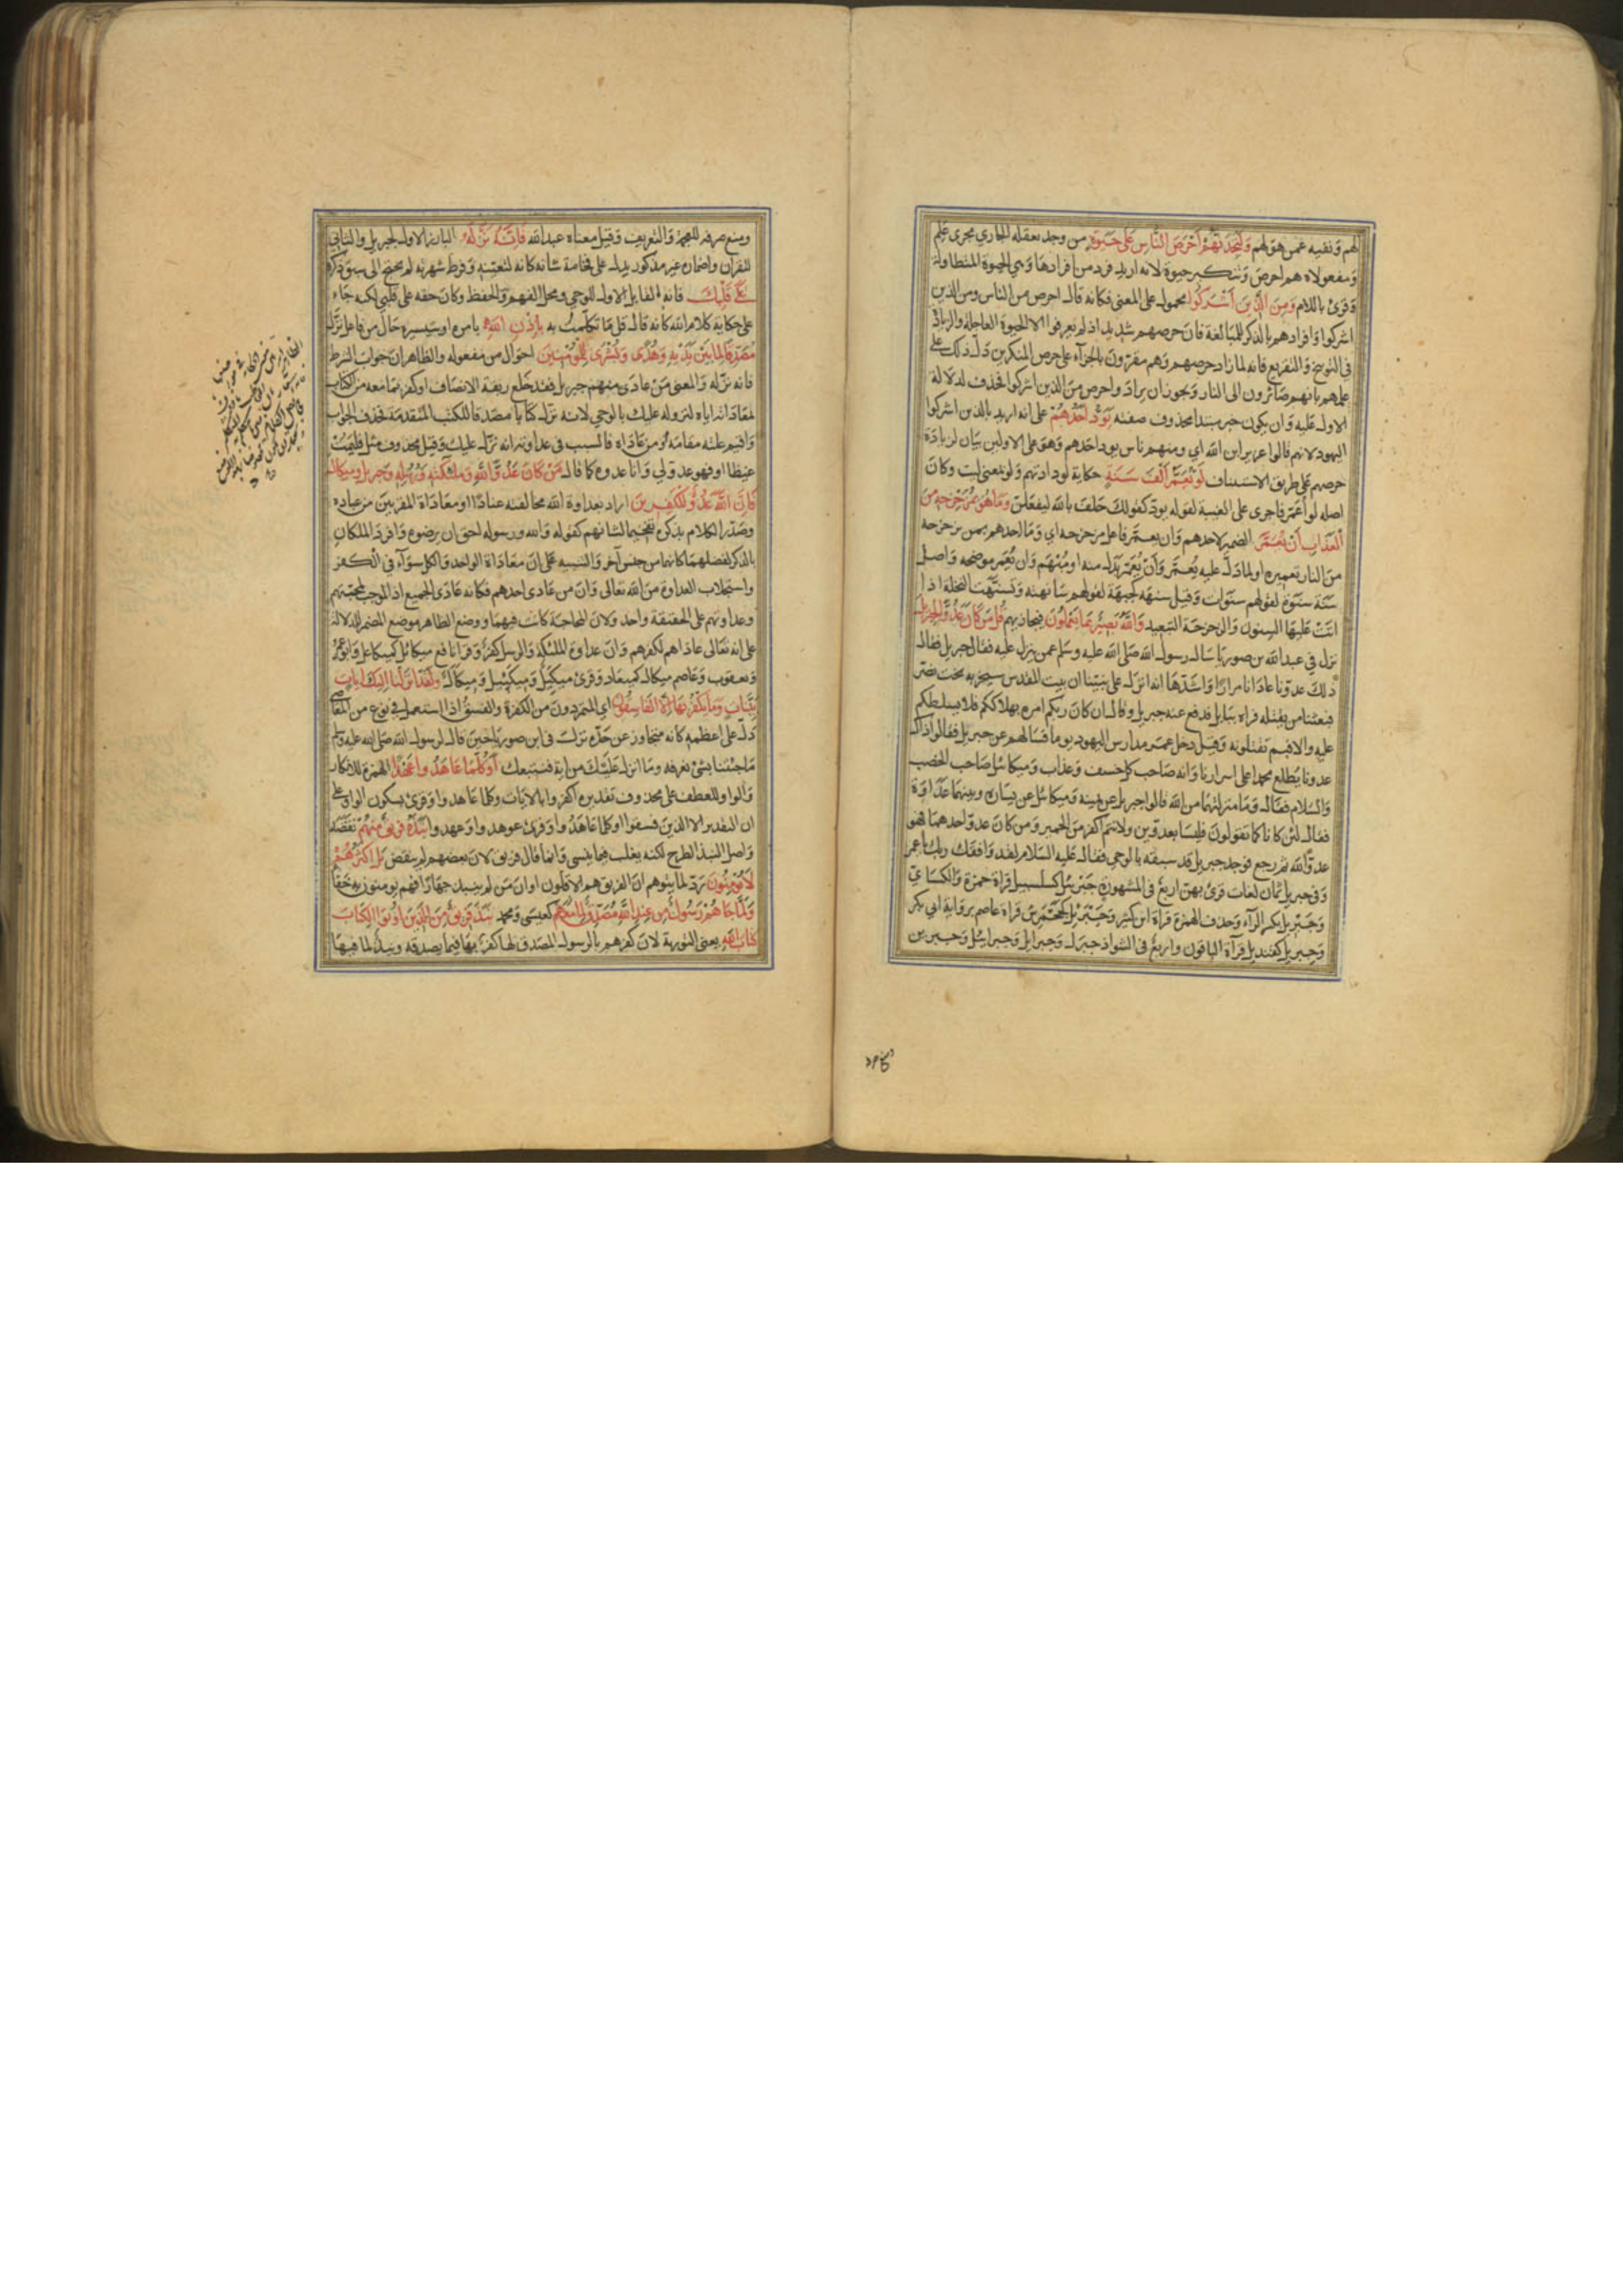 لهم ونفيه عمن هو لهم ولتجدنهم أحرص الناس على حيوة من وجد بعقله الجاري مجرى علم
ومفعولاه هم احرص وتنكير حيوة لانه اريد فرد من افرادها وهي الحيوة المتطاولة
وقرئ باللام ومن الذين أشركوا محمول على المعنى فكانه قال احرص من الناس ومن الذين
اشركوا وافرادهم بالذكر للمبالغة فان حرصهم شديد اذ لم يعرفوا الا الحيوة العاجلة والزيادة
في التوبيخ والتقريع فانه لما زاد حرصهم وهم مقرون بالجزآء على حرص المنكرين دل ذلك على
علمهم بانهم صائرون الى النار ويجوز ان يراد واحرص من الذين اشركوا فحذف لدلالة
الاول عليه وان يكون خبر مبتدا محذوف صفته يود أحدهم على انه اريد بالذين اشركوا
اليهود لانهم قالوا عزير ابن الله اي ومنهم ناس يود احدهم وهو على الاولين بيان لزيادة
حرصهم على طريق الاستيناف لو يعمر ألف سنة حكاية لودادتهم ولو بمعنى ليت وكان
اصله لو أعمر فاجرى على الغيبة لقوله يود كقولك حلف بالله ليفعلن وما هو بمزحزحه من
العذاب أن يعمر الضمير لاحدهم وان يعمر فاعل مزحزحه اي وما احدهم بمن يزحزحه
من النار تعميره او لما دل عليه يعمر وأن يعمر بدل منه او مبهم وان يعمر موضحه واصل
سنة سنوة لقولهم سنوات وقيل سنهة كجبهة لقولهم سانهته وتسنهت النخلة اذا
اتت عليها السنون والزحزحة التبعيد والله بصير بما يعملون فيجازيهم قل من كان عدوا لجبريل
نزل في عبد الله بن صوريا سال رسول الله صلى الله عليه وسلم عمن ينزل عليه فقال جبريل فقال
ذلك عدونا عادانا مرارا واشدها انه انزل على نبينا ان بيت المقدس سيخربه بخت نصر
فبعثنا من يقتله فراه ببابل فدفع عنه جبريل وقال ان كان ربكم امره بهلاككم فلا يسلطكم
عليه والا فبم تقتلونه وقيل دخل عمر مدارس اليهود يوما فسالهم عن جبريل فقالوا ذاك
عدونا يطلع محمدا على اسرارنا وانه صاحب كل خسف وعذاب وميكائل صاحب الخصب
والسلام فقال وما منزلتهما من الله قالوا جبريل عن يمينه وميكائل عن يساره وبينهما عداوة
فقال لئن كانا كما تقولون فليسا بعدوين ولانتم اكفر من الحمير ومن كان عدو احدهما فهو
عدو الله ثم رجع فوجد جبريل قد سبقه بالوحي فقال عليه السلام لقد وافقك ربك يا عمر
وفي جبريل ثمان لغات قرئ بهن اربع في المشهورة جبرئل كسلسبيل قراة حمزة والكسائي
وجبريل بكسر الرآء وحذف الهمزة قراة ابن كثير وجبرئل كجحمرش قراة عاصم برواية ابي بكر
وجبريل كقنديل قرآة الباقون واربع في الشواذ جبرل وجبرايل وجبرائل وجبرين
ومنع صرفه للعجمة والتعريف وقيل معناه عبد الله فإنه نزله البارز الاول لجبريل والثاني
للقران واضماره غير مذكور يدل على فخامة شانه كانه لتعينه وفرط شهرته لم يحتج الى سبق ذكره
على قلبك فانه القابل الاول للوحي ومحل الفهم والحفظ وكان حقه على قلبي لكنه جاء
على حكاية كلام الله كانه قال قل ما تكلمت به بإذن الله بامره او تيسيره حال من فاعل نزل
مصدقا لما بين يديه وهدى وبشرى للمؤمنين احوال من مفعوله والظاهر ان جواب الشرط
فانه نزله والمعنى من عادى منهم جبريل فقد خلع ربقة الانصاف او كفر بما معه من الكتاب
بمعاداته اياه لنزوله عليك بالوحي لانه نزل كتابا مصدقا للكتب المتقدمة فحذف الجواب
واقيم علته مقامه او من عاداه فالسبب في عداوته انه نزل عليك وقيل محذوف مثل فليمت
غيظا او فهو عدو لي وانا عدوه كما قال من كان عدوا لله وملئكته ورسله وجبريل وميكال
فان الله عدو للكفرين اراد بعداوة الله مخالفته عنادا او معاداة المقربين من عباده
وصدر الكلام بذكره تفخيما لشانهم كقوله والله ورسوله احق ان يرضوه وافرد الملكان
بالذكر لفضلهما كانهما من جنس آخر والتنبيه على ان معاداة الواحد والكل سوآء في الكفر
واستجلاب العداوة من الله تعالى وان من عادى احدهم فكانه عادى الجميع اذ الموجب لمحبتهم
وعداوتهم على الحقيقة واحد ولان المحاجة كانت فيهما ووضع الظاهر موضع المضمر للدلالة
على انه تعالى عاداهم لكفرهم وان عداوة الملئكة والرسل كفر وقرا نافع ميكائل كميكاعل وابو عمرو
ويعقوب وعاصم ميكال كميعاد وقرئ ميكئل وميكئيل وميكآل ولقد انزلنا اليك ايات
بينات وما يكفر بها الا الفاسقون اي المتمردون من الكفرة والفسق اذا استعمل في نوع من المعاصي
دل على اعظمه كانه متجاوز عن حده نزلت في ابن صوريا حين قال لرسول الله صلى الله عليه وسلم
ما جئتنا بشئ نعرفه وما انزل عليك من اية فنتبعك أوكلما عاهدوا عهدا الهمزة للانكار
والواو للعطف على محذوف تقديره اكفروا بالايات وكلما عاهدوا وقرئ بسكون الواو على
ان التقدير الا الذين فسقوا او كلما عاهدوا وقرئ عوهدوا وعهدوا نبذه فريق منهم نقضه
واصل النبذ الطرح لكنه يغلب فيما ينسى وانما قال فريق لان بعضهم لم ينقض بل اكثرهم
لا يؤمنون رد لما يتوهم ان الفريق هم الاقلون او ان من لم ينبذ جهارا فهم يومنون به خفآء
ولما جاهم رسول من عند الله مصدق لما معهم كعيسى ومحمد نبذ فريق من الذين اوتوا الكتاب
كتاب الله يعني التورية لان كفرهم بالرسول المصدق لها كفر بها فيما يصدقه ونبذ لما فيها
ومنع